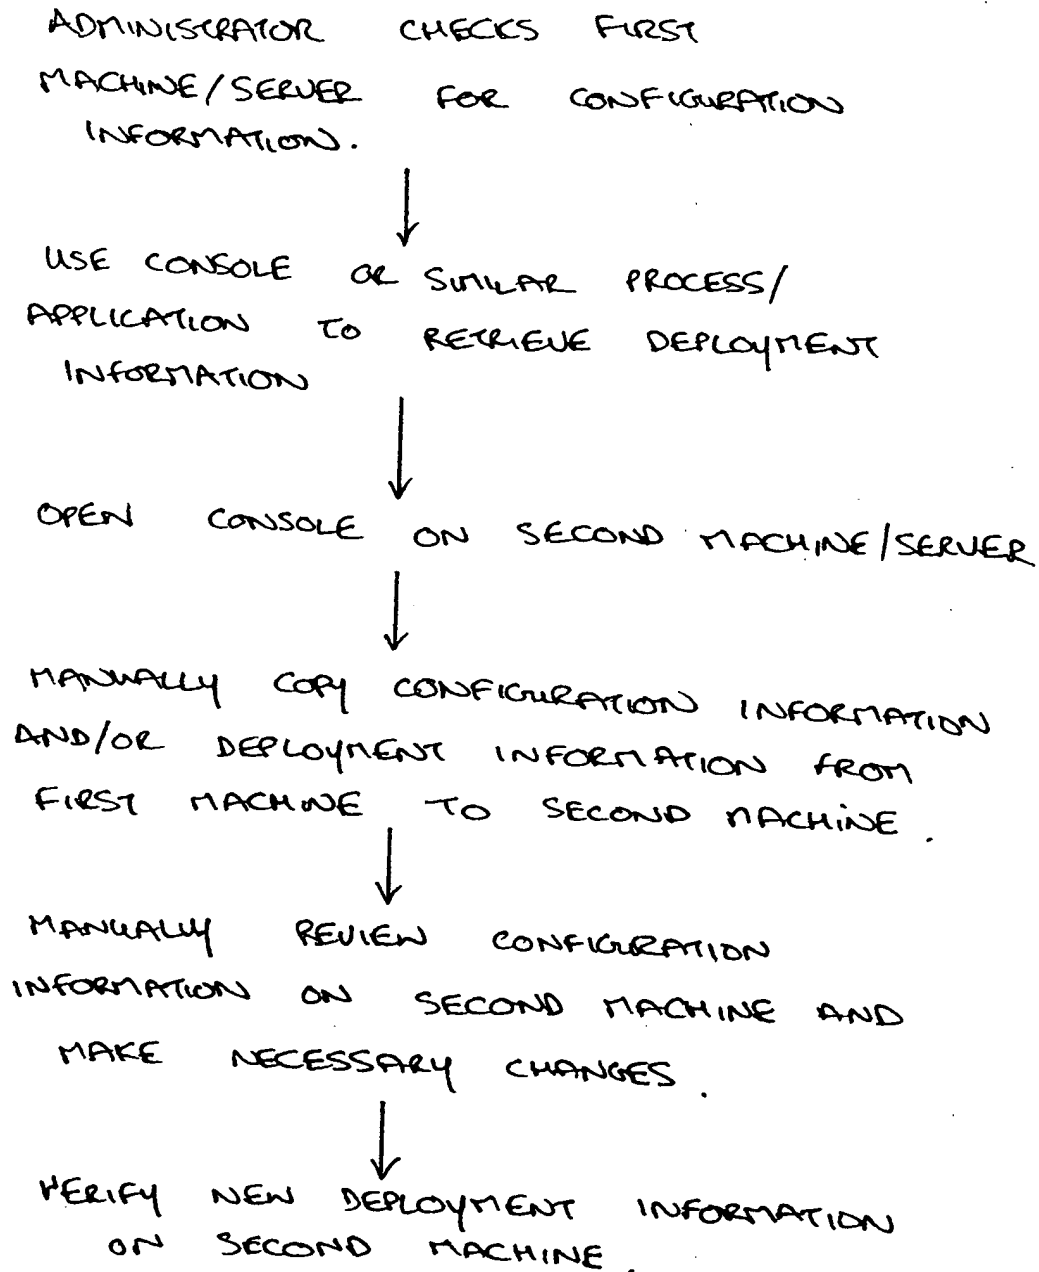 ADMINISTRATOR CHECKS FIRST
MACHINE/SERVER FOR CONFIGURATION
INFORMATION.
USE CONSOLE OR SIMILAR PROCESS/
APPLICATION TO RETRIEVE DEPLOYMENT
INFORMATION
OPEN CONSOLE ON SECOND MACHINE/SERVER
MANUALLY COPY CONFIGURATION INFORMATION
AND/OR DEPLOYMENT INFORMATION FROM
FIRST MACHINE TO SECOND MACHINE.
MANUALLY REVIEW CONFIGURATION
INFORMATION ON SECOND MACHINE AND
MAKE NECESSARY CHANGES.
VERIFY NEW DEPLOYMENT INFORMATION
ON SECOND MACHINE.